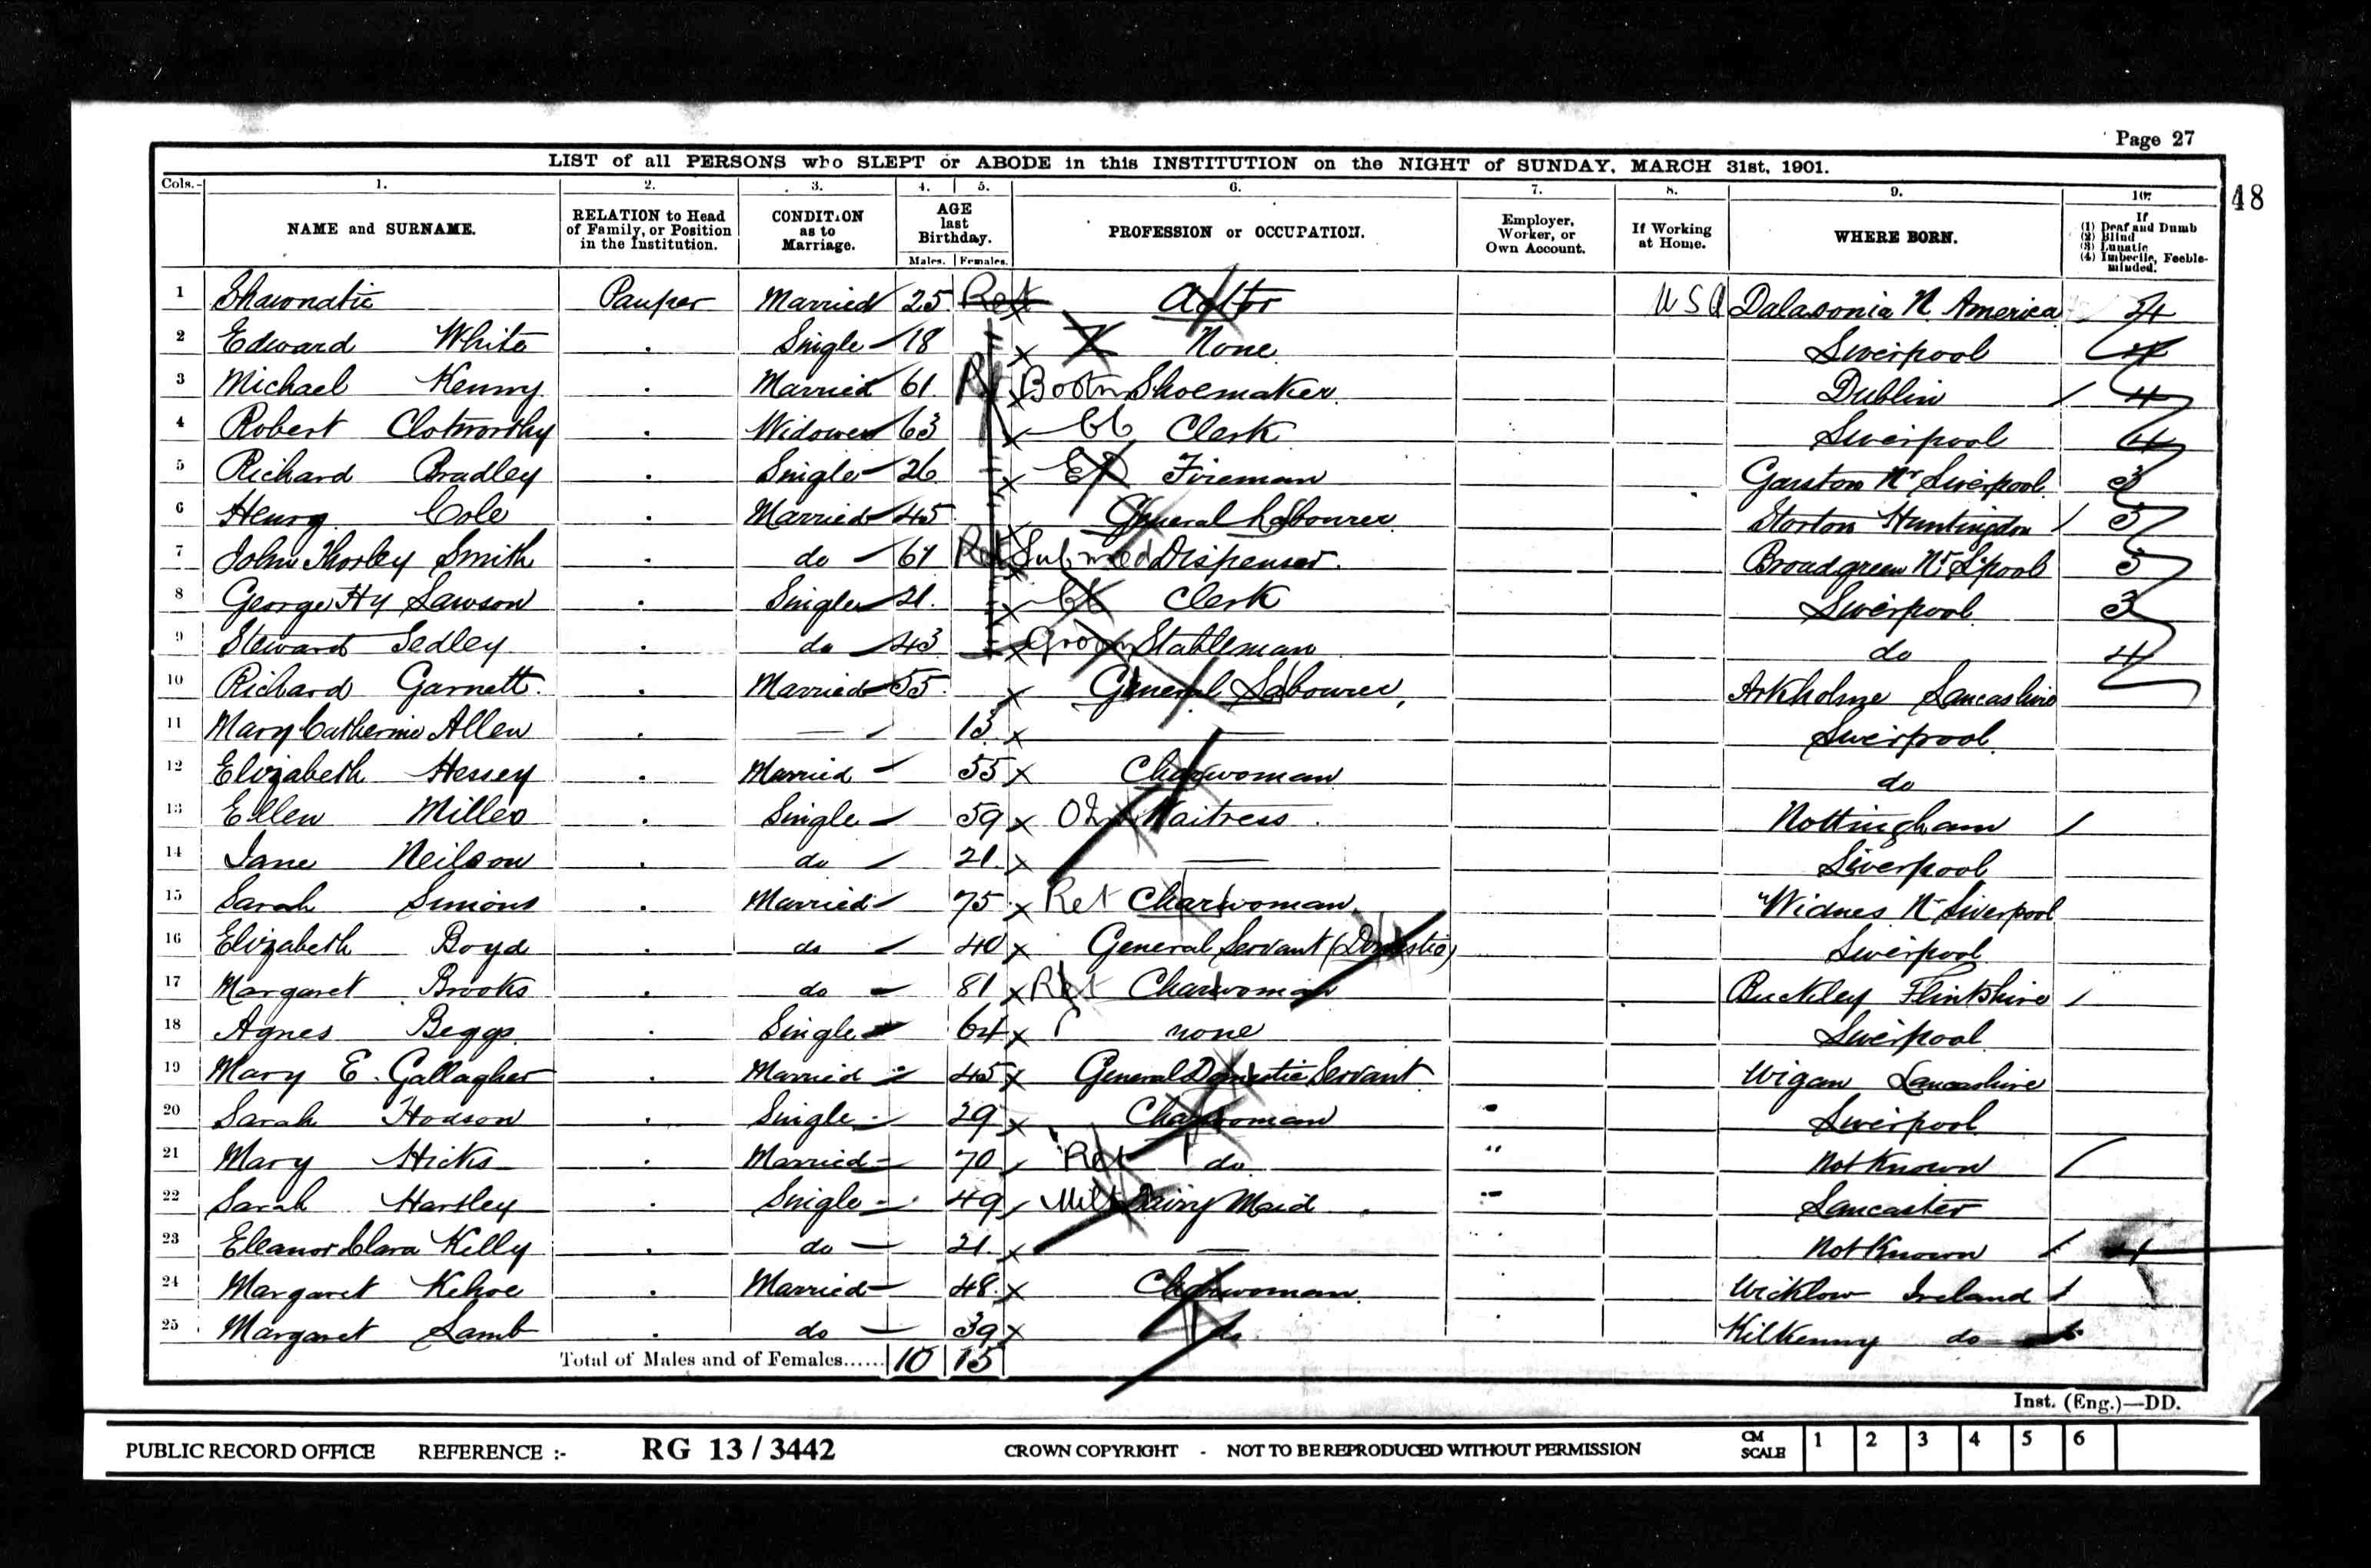 Page 27
LIST of all PERSONS who SLEPT or ABODE in this INSTITUTION on the NIGHT of SUNDAY, MARCH 31st, 1901.
48
Cols. 1. 2. 3. 4. 5. 6. 7. 8. 9. 10.
NAME and SURNAME.
RELATION to Head of Family, or Position in the Institution.
CONDITION as to Marriage.
AGE last Birthday.
Males. Females.
PROFESSION or OCCUPATION.
Employer, Worker, or Own Account.
If Working at Home.
WHERE BORN.
If
(1) Deaf and Dumb
(2) Blind
(3) Lunatic
(4) Imbecile, Feeble-minded.
1 Shawnatie Pauper Married 25 Ret Actor USA Dalasonia N. America 4
2 Edward White . Single 18 None Liverpool 4
3 Michael Kenny . Married 61 Shoemaker Dublin 4
4 Robert Clotworthy . Widower 63 Clerk Liverpool 4
5 Richard Bradley . Single 26 Fireman Garston Nr Liverpool 3
6 Henry Cole . Married 45 General Labourer Huntingdon 3
7 John Thorley Smith . do 61 Dispenser Broadgreen Nr L'pool 3
8 George Hy Lawson . Single 21 Clerk Liverpool 3
9 Steward Sedley . do 43 Groom Stableman do 4
10 Richard Garnett . Married 55 General Labourer Arkholme Lancashire
11 Mary Catherine Allen . — 13 — Liverpool
12 Elizabeth Hessey . Married 55 Charwoman do
13 Ellen Miller . Single 59 Waitress Nottingham
14 Jane Neilson . do 21 — Liverpool
15 Sarah Simions . Married 75 Ret Charwoman Widnes Nr Liverpool
16 Elizabeth Boyd . do 40 General Servant (Domestic) Liverpool
17 Margaret Brooks . do 81 Ret Charwoman Buckley Flintshire
18 Agnes Beggs . Single 64 none Liverpool
19 Mary E. Gallagher . Married 45 General Domestic Servant Wigan Lancashire
20 Sarah Hodson . Single 29 Charwoman Liverpool
21 Mary Hicks . Married 70 Ret do Not Known
22 Sarah Hartley . Single 49 Milk Dairy Maid Lancaster
23 Eleanor Clara Kelly . do 21 — Not Known 4
24 Margaret Kehoe . Married 48 Charwoman Wicklow Ireland
25 Margaret Lamb . do 39 do Kilkenny do
Total of Males and of Females...... 10 15
Inst. (Eng.)—DD.
PUBLIC RECORD OFFICE REFERENCE :- RG 13 / 3442 CROWN COPYRIGHT - NOT TO BE REPRODUCED WITHOUT PERMISSION CM SCALE 1 2 3 4 5 6